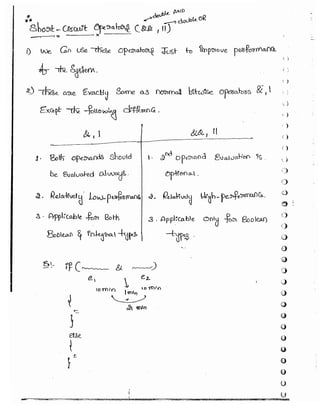 double AND
double OR
Short-Circuit Operators ( && , || )
1) We Can use These operators Just to Improve performance
of the System.
2) These are Exactly Same as normal bitwise operators & , |
Except The following difference.
&, |
&&, ||
1. Both operands Should
be Evaluated Always.
1. 2nd operand Evaluation is
Optional.
2. Relatively Low-performance
2. Relatively High-performance.
3. Applicable for Both
Boolean & Integral types
3. Applicable Only for Boolean
types.
Ex: if ( & )
e1
e2
10 min
1 min
10 min
21 min
{
}
else
{
}